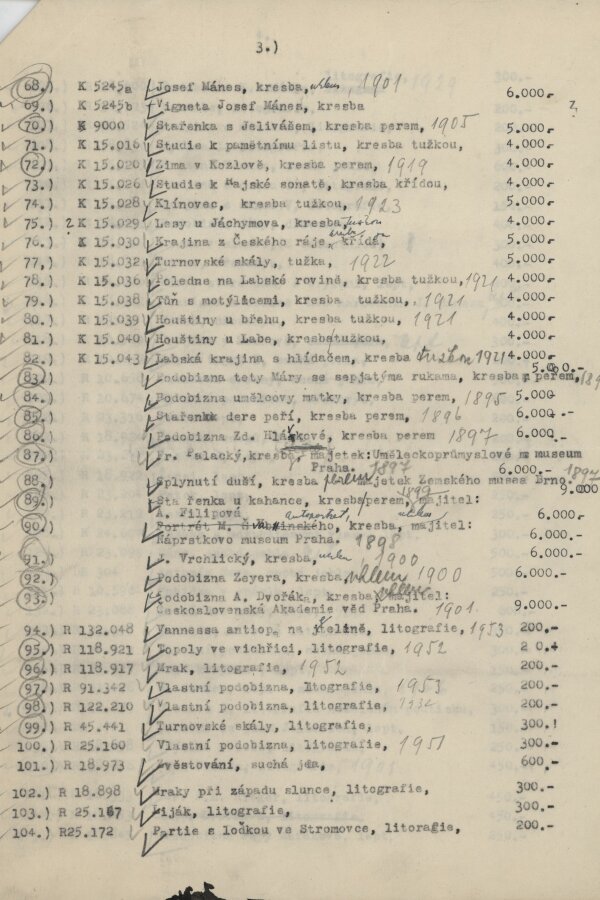 3.)
68.) K 5245a Josef Mánes, kresba, uhlem, 1901 6.000.-
69.) K 5245b Vigneta Josef Mánes, kresba ?
70.) K 9000 Stařenka s Jelivášem, kresba perem, 1905 5.000.-
71.) K 15.016 Studie k pamětnímu listu, kresba tužkou, 4.000.-
72.) K 15.020 Zima v Kozlově, kresba perem, 1919 4.000.-
73.) K 15.026 Studie k Majské sonatě, kresba křídou, 4.000.-
74.) K 15.028 Klínovec, kresba tužkou, 1923 5.000.-
75.) 2 K 15.029 Lesy u Jáchymova, kresba, tuškou 4.000.-
76.) K 15.030 Krajina z Českého ráje, kresba křídá, 5.000.-
77,) K 15.032 Turnovské skály, tužka, 1922 5.000.-
78.) K 15.036 Poledne na Labské rovině, kresba tužkou, 1921 4.000.-
79.) K 15.038 Tůň s motýlicemi, kresba tužkou, 1921 4.000.-
80.) K 15.039 Houštiny u břehu, kresba tužkou, 1921 4.000.-
81.) K 15.040 Houštiny u Labe, kresba tužkou, 4.000.-
82.) K 15.043 Labská krajina s hlídačem, kresba tuškou 1921 4.000.-
83.) Podobizna tety Máry se sepjatýma rukama, kresba perem, 5.000.-
84.) Podobizna umělcovy matky, kresba perem, 1895 5.000
85.) Stařenka dere peří, kresba perem, 1896 6.000.-
86.) Podobizna Zd. Hlávkové, kresba perem 1897 6.000.-
87.) Fr. Palacký, kresba, majetek: Uměleckoprůmyslové museum
Praha. 1897 6.000.-
88.) Splynutí duší, kresba uhlem majetek Zemského musea Brno. 1897 9.000
89.) Stařenka u kahance, kresba perem, majitel: 1899
A. Filipová 6.000.-
90.) Portrét M. autoportret, kresba, uhlem majitel: 6.000.-
Náprstkovo museum Praha. 1898
91.) J. Vrchlický, kresba, uhlem 1900 6.000.-
92.) Podobizna Zeyera, kresba, uhlem 1900 6.000.-
93.) Podobizna A. Dvořáka, kresba uhlem majitel:
Československá Akademie věd Praha. 1901 9.000.-
94.) R 132.048 Vannessa antiopa na jřelině, litografie, 1953 200.-
95.) R 118.921 Topoly ve vichřici, litografie, 1952 2 0.
96.) R 118.917 Mrak, litografie, 1952 200.-
97.) R 91.342 Vlastní podobizna, litografie, 1953 200.-
98.) R 122.210 Vlastní podobizna, litografie, 200.-
99.) R 45.441 Turnovské skály, litografie, 300.!
100.) R 25.160 Vlastní podobizna, litografie, 1951 300.-
101.) R 18.973 Zvěstování, suchá jela, 600.-
102.) R 18.898 Mraky při západu slunce, litografie, 300.-
103.) R 25.167 Liják, litografie, 300.-
104.) R25.172 Partie s lodkou ve Stromovce, litoragie, 200.-